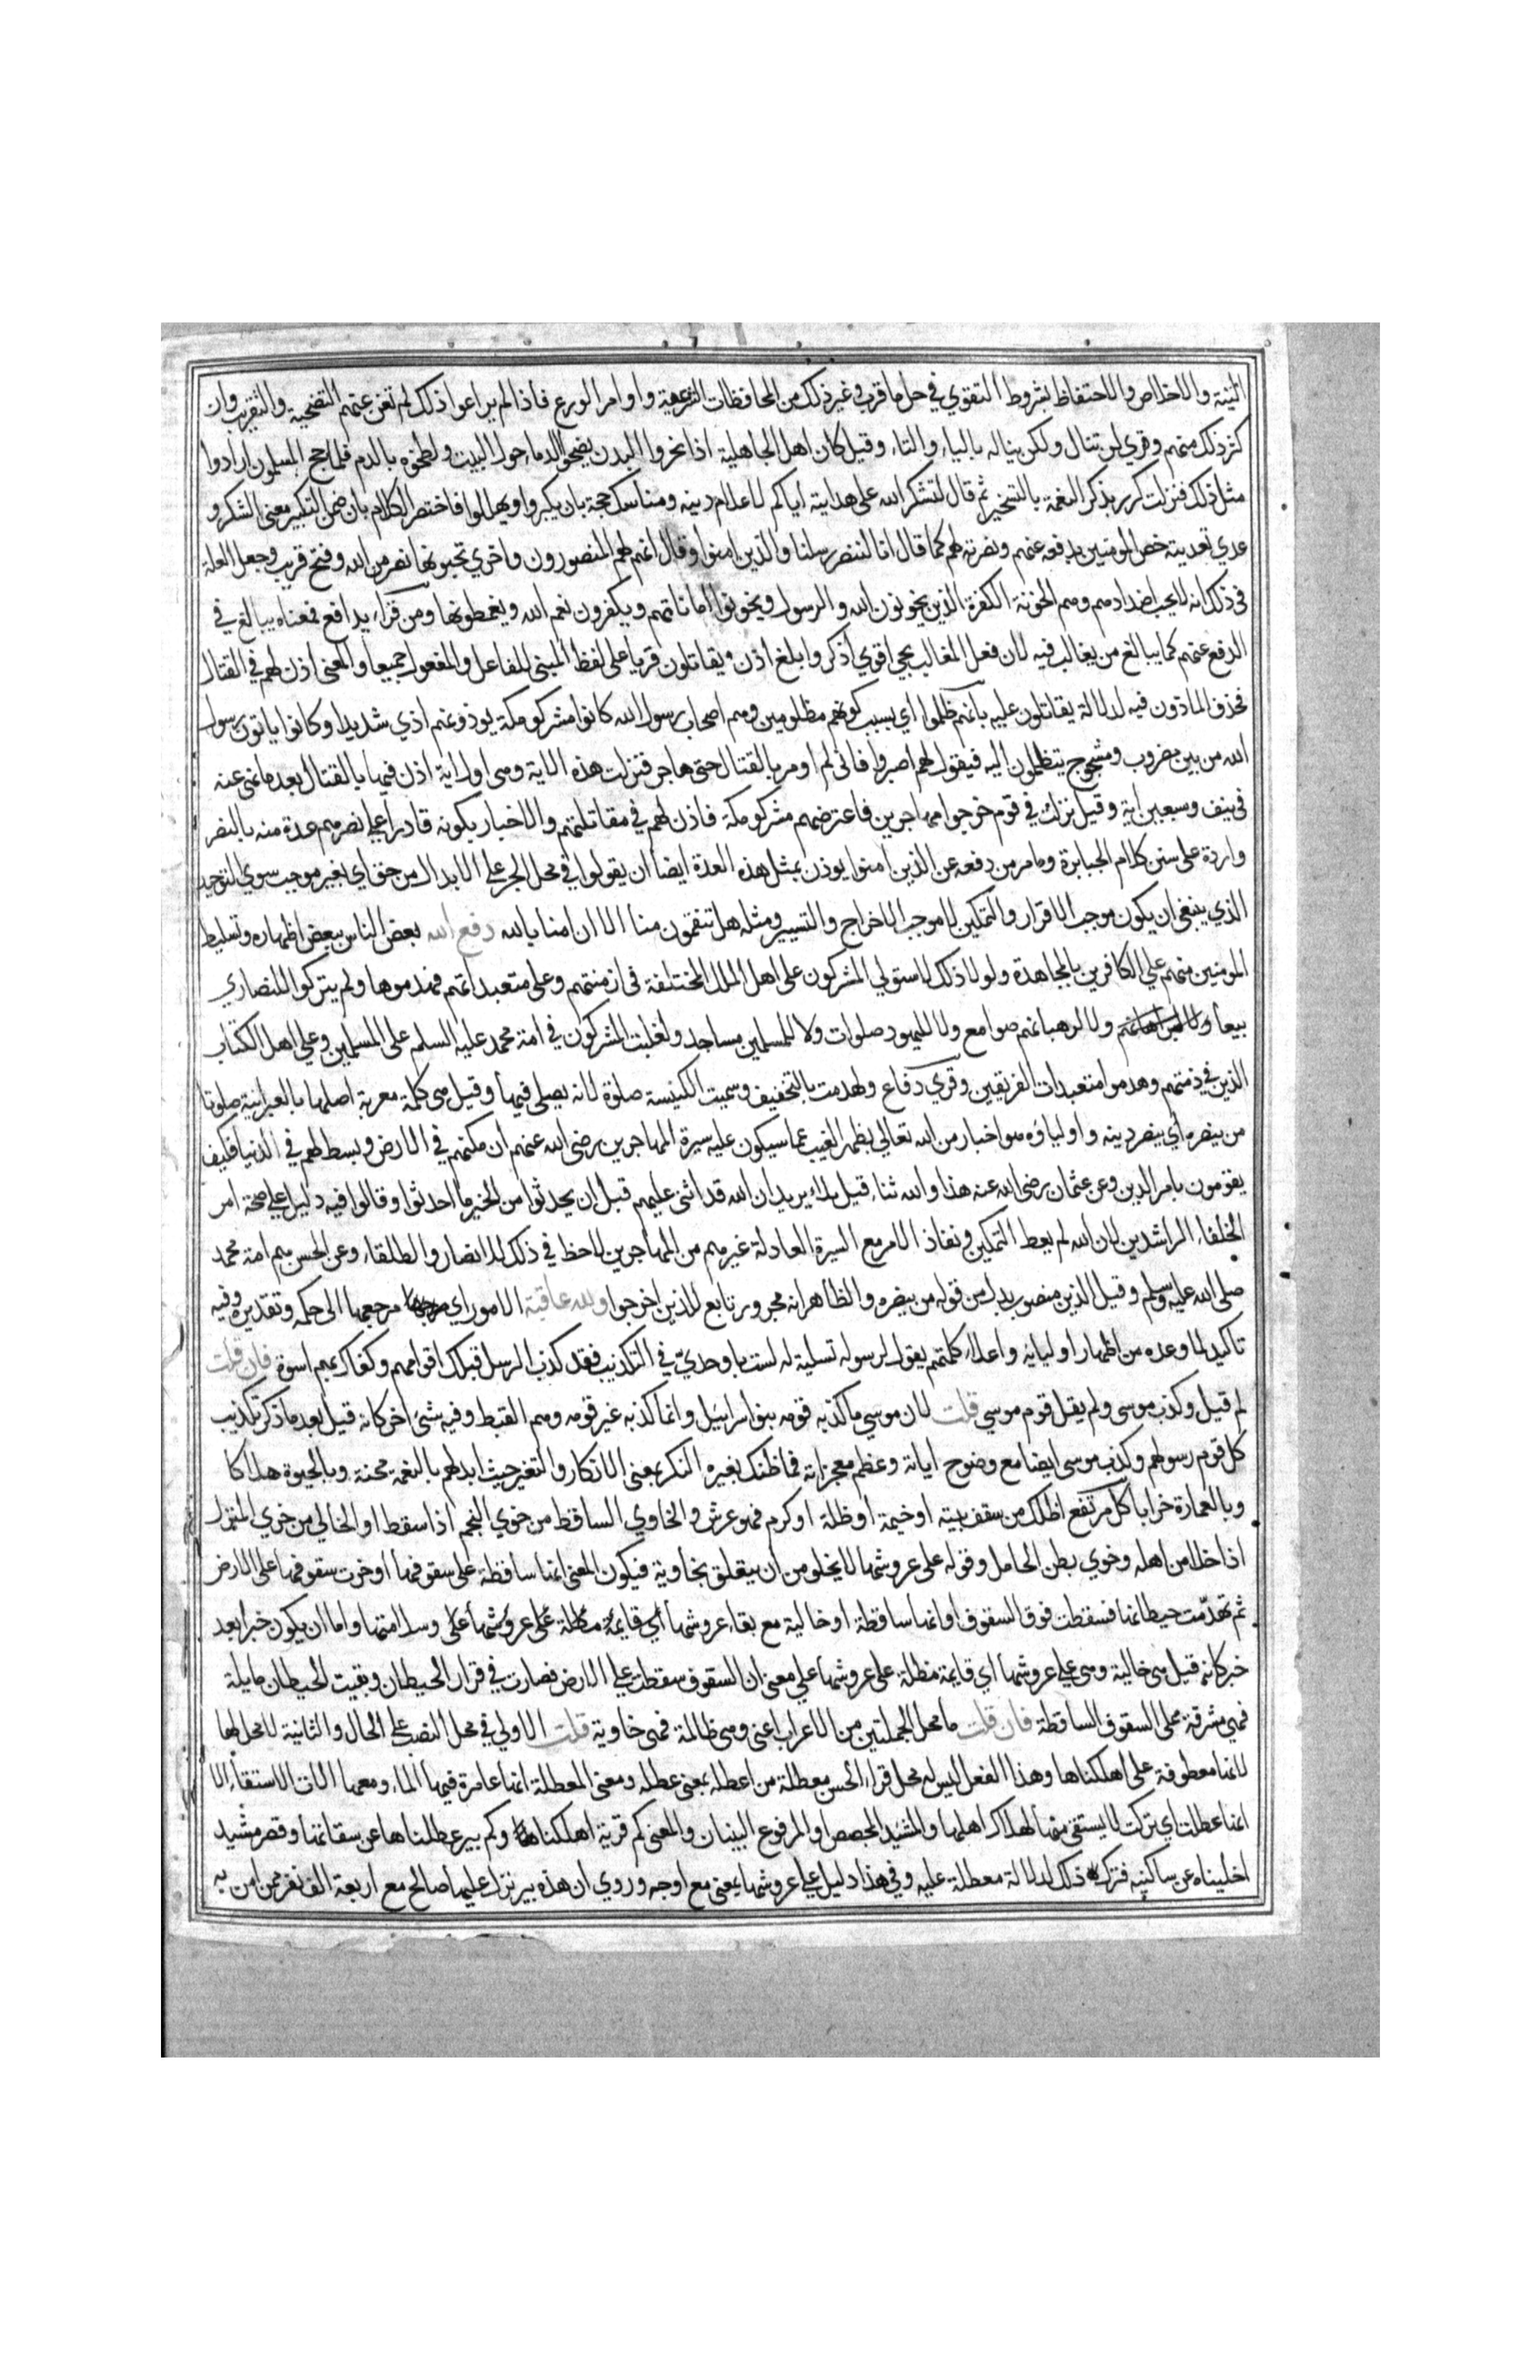 النية والاخلاص والاحتفاظ بشروط التقوي في حل ما قرب وغير ذلك من المحافظات الشرعية واوامر الورع فاذا لم يراعوا ذلك لم تغن عنهم التضحية والتقريب وان
كثر ذلك منهم وقري لن تنال ولكن يناله بالياء والتاء وقيل كان اهل الجاهلية اذا نحروا البدن نضحوا الدماء حول البيت ولطخوه بالدم فلما حج المسلمون ارادوا
مثل ذلك فنزلت كرر بذكر النعمة بالتسخير ثم قال لتشكر الله على هدايته اياكم لاعلام دينه ومناسك حجة بان يكبروا ويهللوا فاختصر الكلام بان ضمن التكبير معنى الشكر و
عدي تعديته خص المومنين بدفعه عنهم ونصرته لهم كما قال انا لننصر رسلنا والذين امنوا وقال انهم لهم المنصورون واخري تحبونها نصر من الله وفتح قريب وجعل العلة
في ذلك انه لا يحب اضدادهم وهم الخونة الكفرة الذين يخونون الله والرسول ويخونوا اماناتهم ويكفرون نعم الله ويغمطونها ومن قراء يدافع فمعناه يبالغ في
الدفع عنهم كما يبالغ من يغالب فيه لان فعل المغالب يجي اقوي اذكر وابلغ اذن ويقاتلون قريا على لفظ المبني للفاعل والمفعول جميعا والمعنى اذن لهم في القتال
فحذف الماذون فيه لدلالة يقاتلون عليه بانهم ظلموا اي بسبب كونهم مظلومين وهم اصحاب رسول الله كانوا مشركو مكة يوذونهم اذي شديدا وكانوا ياتون رسول
الله من بين مضروب ومشجوج يتظلمون اليه فيقول لهم اصبروا فاني لم اومر بالقتال حتى هاجر فنزلت هذه الاية وهي اول اية اذن فيها بالقتال بعد ما نهي عنه
في نيف وسبعين اية وقيل نزلت في قوم خرجوا مهاجرين فاعترضهم مشركو مكة فاذن لهم في مقاتلتهم والاخبار بكونه قادرا على نصرهم عدة منه بالنصر
واردة على سنن كلام الجبابرة وما مر من دفعه عن الذين امنوا يوذن بمثل هذه العدة ايضا ان يقولوا في محل الجر على الابدال من حق اي بغير موجب سوي التوحيد
الذي ينبغي ان يكون موجب الاقرار والتمكين لا موجب الاخراج والتسيير ومثله هل تنقمون منا الا ان امنا بالله دفع الله بعض الناس ببعض اظهاره وتسليط
المومنين منهم على الكافرين بالمجاهدة ولولا ذلك لاستولي المشركون على اهل الملل المختلفة في ازمنتهم وعلى متعبداتهم فهدموها ولم يتركوا للنصاري
بيعا ولا لرهبانهم صوامع ولا لليهود صلوات ولا للمسلمين مساجد ولغلبت المشركون في امة محمد عليه السلم على المسلمين وعلى اهل الكتاب
الذين في ذمتهم وهدموا متعبدات الفريقين وقري دفاع ولهدمت بالتخفيف وسميت الكنيسة صلوة لانه يصلى فيها وقيل هي كلمة معربة اصلها بالعبرانية صلوتا
من ينصره اي ينصر دينه واولياؤه هو اخبار من الله تعالي بظهر الغيب عما سيكون عليه سيرة المهاجرين رضى الله عنهم ان مكنهم في الارض وبسط لهم في الدنيا وكيف
يقومون بامر الدين وعن عثمان رضى الله عنه هذا والله ثناء قبل بلاء يريد ان الله قد اثنى عليهم قبل ان يحدثوا من الخير ما احدثوا وقالوا فيه دليل على صحة امر
الخلفاء الراشدين لان الله لم يعط التمكين ونفاذ الامر مع السيرة العادلة غيرهم من المهاجرين لا حظ في ذلك للانصار والطلقاء وعن الحسن هم امة محمد
صلى الله عليه وسلم وقيل الذين منصوب بدل من قوله من ينصره والظاهر انه مجرور تابع للذين اخرجوا ولله عاقبة الامور اي مرجعها الى حكمه وتقديره وفيه
تاكيد لما وعده من اظهار اوليائه واعلاء كلمتهم يقول لرسوله تسلية له لست باوحدي في التكذيب فقد كذب الرسل قبلك اقوامهم وكفاك بهم اسوة فان قلت
لم قيل وكذب موسى ولم يقل قوم موسي قلت لان موسي ما كذبه قومه بنوا اسرائيل وانما كذبه غير قومه وهم القبط وفيه شئ اخر كانه قيل بعد ما ذكر تكذيب
كل قوم رسولهم وكذب موسى ايضا مع وضوح اياته وعظم معجزاته فما ظنك بغيره النكر بمعنى الانكار والتغير حيث ابدلهم بالنعمة محنة وبالحيوة هلاكا
وبالعمارة خرابا كل مرتفع اظلك من سقف بيته او خيمة او ظلة او كرم فهو عرش والخاوي الساقط من خوي النجم اذا سقط او الخالي من خوي المنزل
اذا خلا من اهله وخوي بطن الحامل وقوله على عروشها لا يخلو من ان يتعلق بخاوية فيكون المعنى انها ساقطة على سقوفها او خرت سقوفها على الارض
ثم تهدمت حيطانها فسقطت فوق السقوف او انها ساقطة او خالية مع بقاء عروشها اي قايمة مطلة على عروشها على وسلامتها واما ان يكون خبرا بعد
خبر كانه قيل هي خالية وهي على عروشها اي قايمة مظلة على عروشها على معنى ان السقوف سقطت على الارض فصارت في قرار الحيطان وبقيت الحيطان مايلة
فهي مشرفة على السقوف الساقطة فان قلت ما محل الجملتين من الاعراب اعنى وهي ظالمة فهي خاوية قلت الاولي في محل النصب على الحال والثانية لا محل لها
لانها معطوفة على اهلكناها وهذا الفعل ليس له محل قراء الحسن معطلة من اعطله بمعنى عطله ومعنى المعطلة انها عامرة فيها الماء ومعها الات الاستقاء الا
انها عطلت اي تركت لا يستقى منها لهلاك اهلها والمشيد المجصص او المرفوع البنيان والمعنى كم قرية اهلكنا وكم بير عطلناها عن سقاتها وقصر مشيد
اخليناه عن ساكنيه فترك ذلك لدلالة معطلة عليه وفي هذا دليل على على عروشها بمعنى مع اوجه وروي ان هذه بير نزل عليها صالح مع اربعة الف نفر ممن امن به